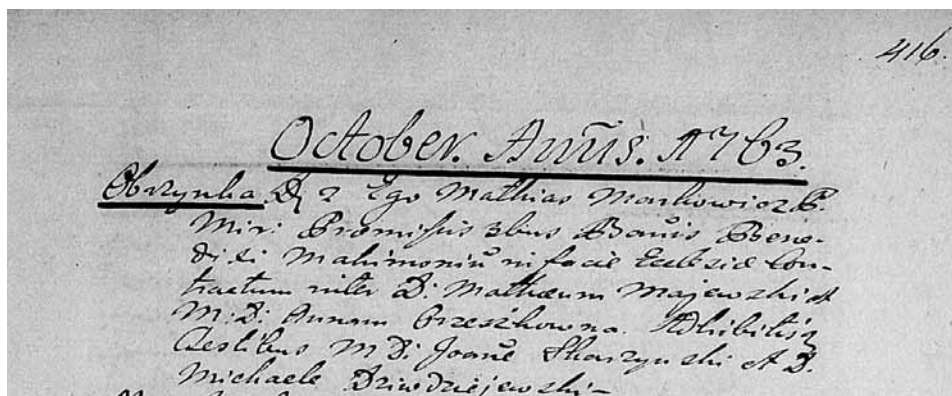 416.
October. Annus. 1763.
Obrzynka D 2 Ego Mathias Markowicz P.
Mir: Promissis 3bus Bannis Bene-
dixi Matrimoniũ in facie Ecclesiæ Con-
tractum inter D: Mathæum Majewski et
M: D: Annam Grzeszkowna. Adhibitis
Testibus M Di Joañe Skarzynski et D.
Michaele Dziwdziejewski -